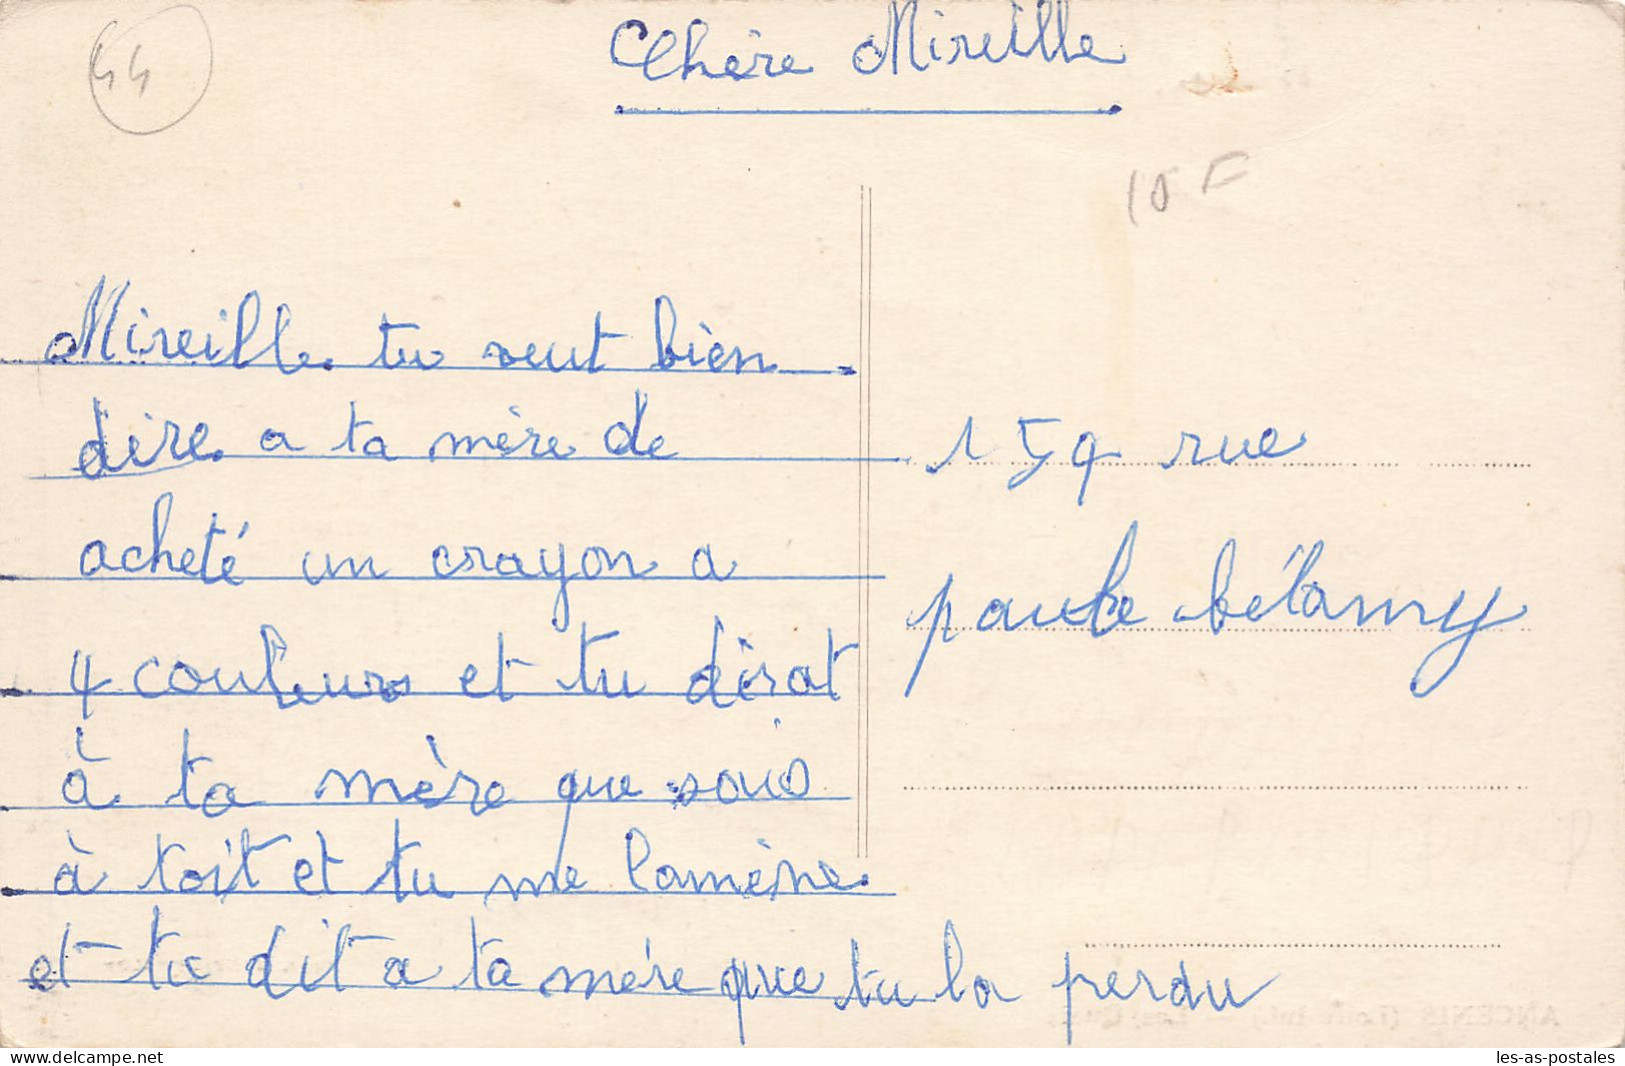 44
Chère Mireille
10F
Mireille tu veut bièn
dire a ta mère de
acheté un crayon a
4 couleurs et tu dirat
à ta mère que sais
à toit et tu me lamène
et tu dit a ta mère que tu la perdu
159 rue
paule bélamy
ANCENIS (Loire Inf.) - Les Quais
les-as-postales